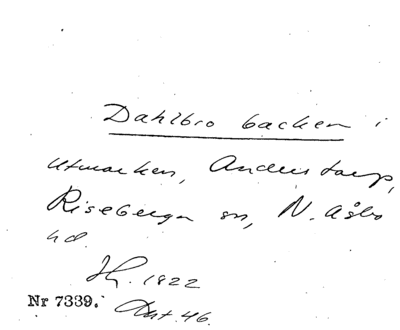 Dahlbro backen i
utmarken, Anderstorp,
Riseberga sn, N. Åsbo
hd.
Jh. 1822
Nr 7339. Akt 46